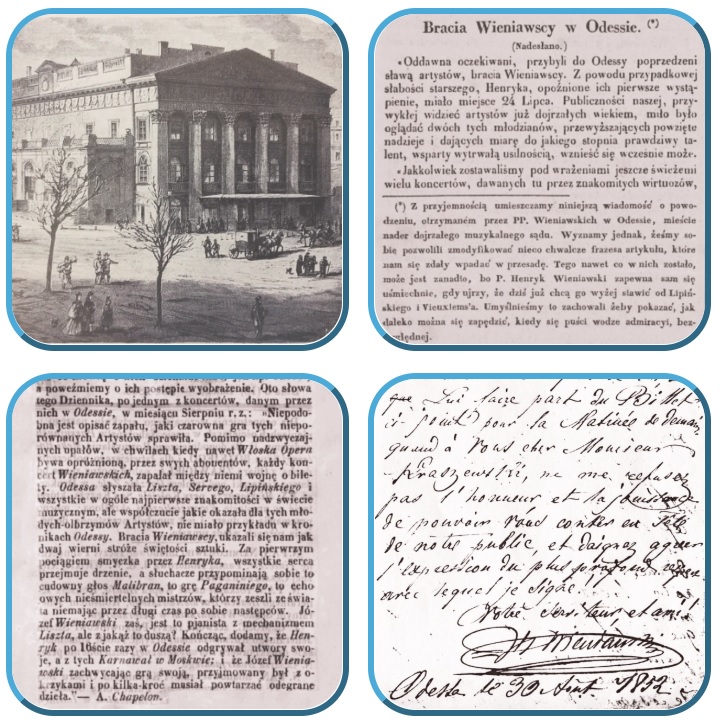 Bracia Wieniawscy w Odessie. (*)
(Nadesłano.)
«Oddawna oczekiwani, przybyli do Odessy poprzedzeni
sławą artystów, bracia Wieniawscy. Z powodu przypadkowej
słabości starszego, Henryka, opóźnione ich pierwsze wystą-
pienie, miało miejsce 24 Lipca. Publiczności naszej, przy-
wykłej widzieć artystów już dojrzałych wiekiem, miło było
oglądać dwóch tych młodzianów, przewyższających powzięte
nadzieje i dających miarę do jakiego stopnia prawdziwy ta-
lent, wsparty wytrwałą usilnością, wznieść się wcześnie może.
«Jakkolwiek zostawaliśmy pod wrażeniami jeszcze świeżemi
wielu koncertów, dawanych tu przez znakomitych wirtuozów,
(*) Z przyjemnością umieszczamy niniejszą wiadomość o powo-
dzeniu, otrzymanem przez PP. Wieniawskich w Odessie, mieście
nader dojrzałego muzykalnego sądu. Wyznamy jednak, żeśmy so-
bie pozwolili zmodyfikować nieco chwalcze frazesa artykułu, które
nam się zdały wpadać w przesadę. Tego nawet co w nich zostało,
może jest zanadto, bo P. Henryk Wieniawski zapewna sam się
uśmiechnie, gdy ujrzy, że dziś już chcą go wyżej stawić od Lipiń-
skiego i Vieuxtems'a. Umyślnieśmy to zachowali żeby pokazać, jak
daleko można się zapędzić, kiedy się puści wodze admiracyi, bez-
względnej.
a poweźmiemy o ich postępie wyobrażenie. Oto słowa
tego Dziennika, po jednym z koncertów, danym przez
nich w Odessie, w miesiącu Sierpniu r. z.: «Niepodo-
bna jest opisać zapału, jaki czarowna gra tych niepo-
równanych Artystów sprawiła. Pomimo nadzwyczaj-
nych upałów, w chwilach kiedy nawet Włoska Opera
bywa opróżnioną, przez swych abonentów, każdy kon-
cert Wieniawskich, zapalał między niemi wojnę o bile-
ty. Odessa słyszała Liszta, Serwego, Lipińskiego i
wszystkie w ogóle najpierwsze znakomitości w świecie
muzycznym, ale współczucie jakie okazała dla tych mło-
dych-olbrzymów Artystów, nie miało przykładu w kro-
nikach Odessy. Bracia Wieniawscy, ukazali się nam jak
dwaj wierni stróże świętości sztuki. Za pierwszym
pociągiem smyczka przez Henryka, wszystkie serca
przejmuje drzenie, a słuchacze przypominają sobie to
cudowny głos Malibran, to grę Paganiniego, to echo
owych nieśmiertelnych mistrzów, którzy zeszli ze świa-
ta niemając przez długi czas po sobie następców. Jó-
zef Wieniawski zaś, jest to pianista z mechanizmem
Liszta, ale z jakąż to duszą? Kończąc, dodamy, że Hen-
ryk po 10ście razy w Odessie odgrywał utwory swo-
je, a z tych Karnawał w Moskwie; i że Józef Wienia-
wski zachwycając grą swoją, przyjmowany był z o-
krzykami i po kilka-kroć musiał powtarzać odegrane
dzieła."— A. Chapelon.
que lui faire part du Billet
ci-joint pour la Matinée de demain,
quand à Vous cher Monsieur
Kraszewski, ne me refusez
pas l'honneur et la jouissance
de pouvoir Vous conter en tête
de notre public, et daignez agréer
l'expression du plus profond respect
avec lequel je signe.
Votre serviteur et ami
H Wieniawski
Odessa le 30 Août 1852